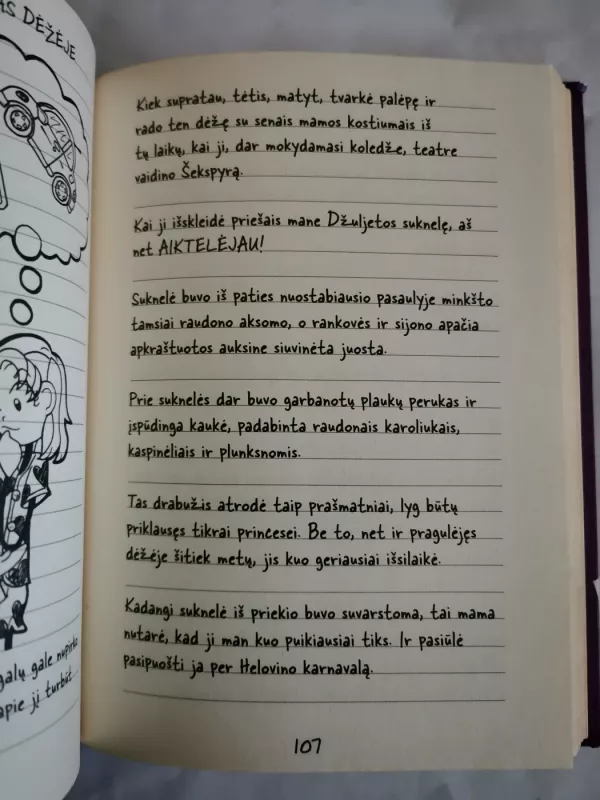 AS DĖŽĖJE
galų gale nupirko
apie jį turbūt
Kiek supratau, tėtis, matyt, tvarkė palėpę ir
rado ten dėžę su senais mamos kostiumais iš
tų laikų, kai ji, dar mokydamasi koledže, teatre
vaidino Šekspyrą.
Kai ji išskleidė priešais mane Džuljetos suknelę, aš
net AIKTELĖJAU!
Suknelė buvo iš paties nuostabiausio pasaulyje minkšto
tamsiai raudono aksomo, o rankovės ir sijono apačia
apkraštuotos auksine siuvinėta juosta.
Prie suknelės dar buvo garbanotų plaukų perukas ir
įspūdinga kaukė, padabinta raudonais karoliukais,
kaspinėliais ir plunksnomis.
Tas drabužis atrodė taip prašmatniai, lyg būtų
priklausęs tikrai princesei. Be to, net ir pragulėjęs
dėžėje šitiek metų, jis kuo geriausiai išsilaikė.
Kadangi suknelė iš priekio buvo suvarstoma, tai mama
nutarė, kad ji man kuo puikiausiai tiks. Ir pasiūlė
pasipuošti ja per Helovino karnavalą.
107